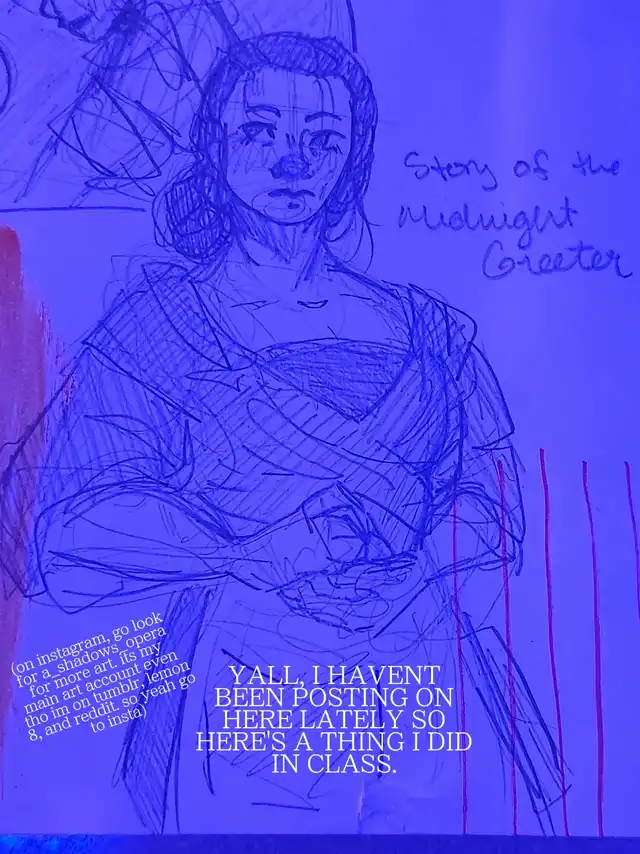 Story of the
Midnight
Greeter
(on instagram, go look
for a_shadows_opera
for more art. its my
main art account even
tho im on tumblr, lemon
8, and reddit. so yeah go
to insta)
YALL, I HAVENT
BEEN POSTING ON
HERE LATELY SO
HERE'S A THING I DID
IN CLASS.